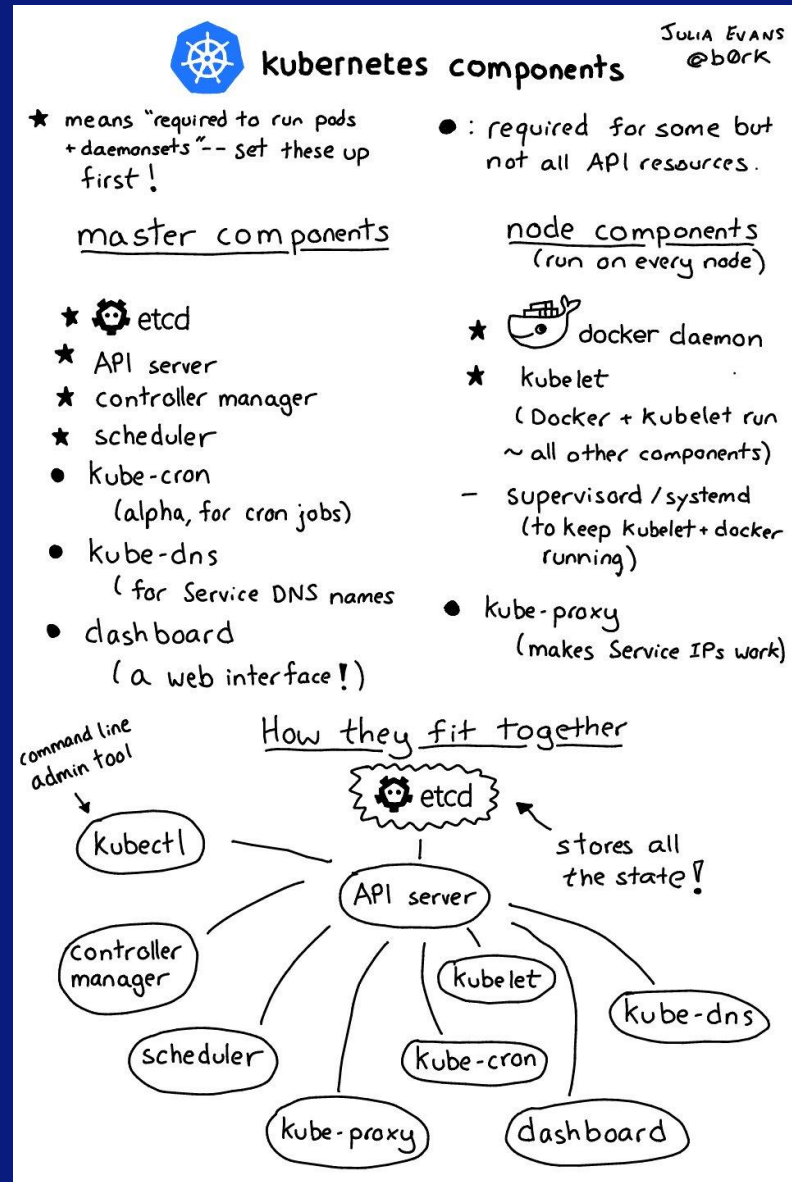 kubernetes components
JULIA EVANS
@b0rk
★ means "required to run pods
+ daemonsets" -- set these up
first!
● : required for some but
not all API resources.
master components
★ etcd
★ API server
★ controller manager
★ scheduler
● kube-cron
(alpha, for cron jobs)
● kube-dns
( for Service DNS names
● dashboard
( a web interface! )
node components
(run on every node)
★ docker daemon
★ kubelet
( Docker + kubelet run
~ all other components)
- supervisord / systemd
(to keep kubelet + docker
running)
● kube-proxy
(makes Service IPs work)
How they fit together
command line
admin tool
etcd
stores all
the state!
kubectl
API server
controller
manager
kubelet
kube-dns
scheduler
kube-cron
kube-proxy
dashboard